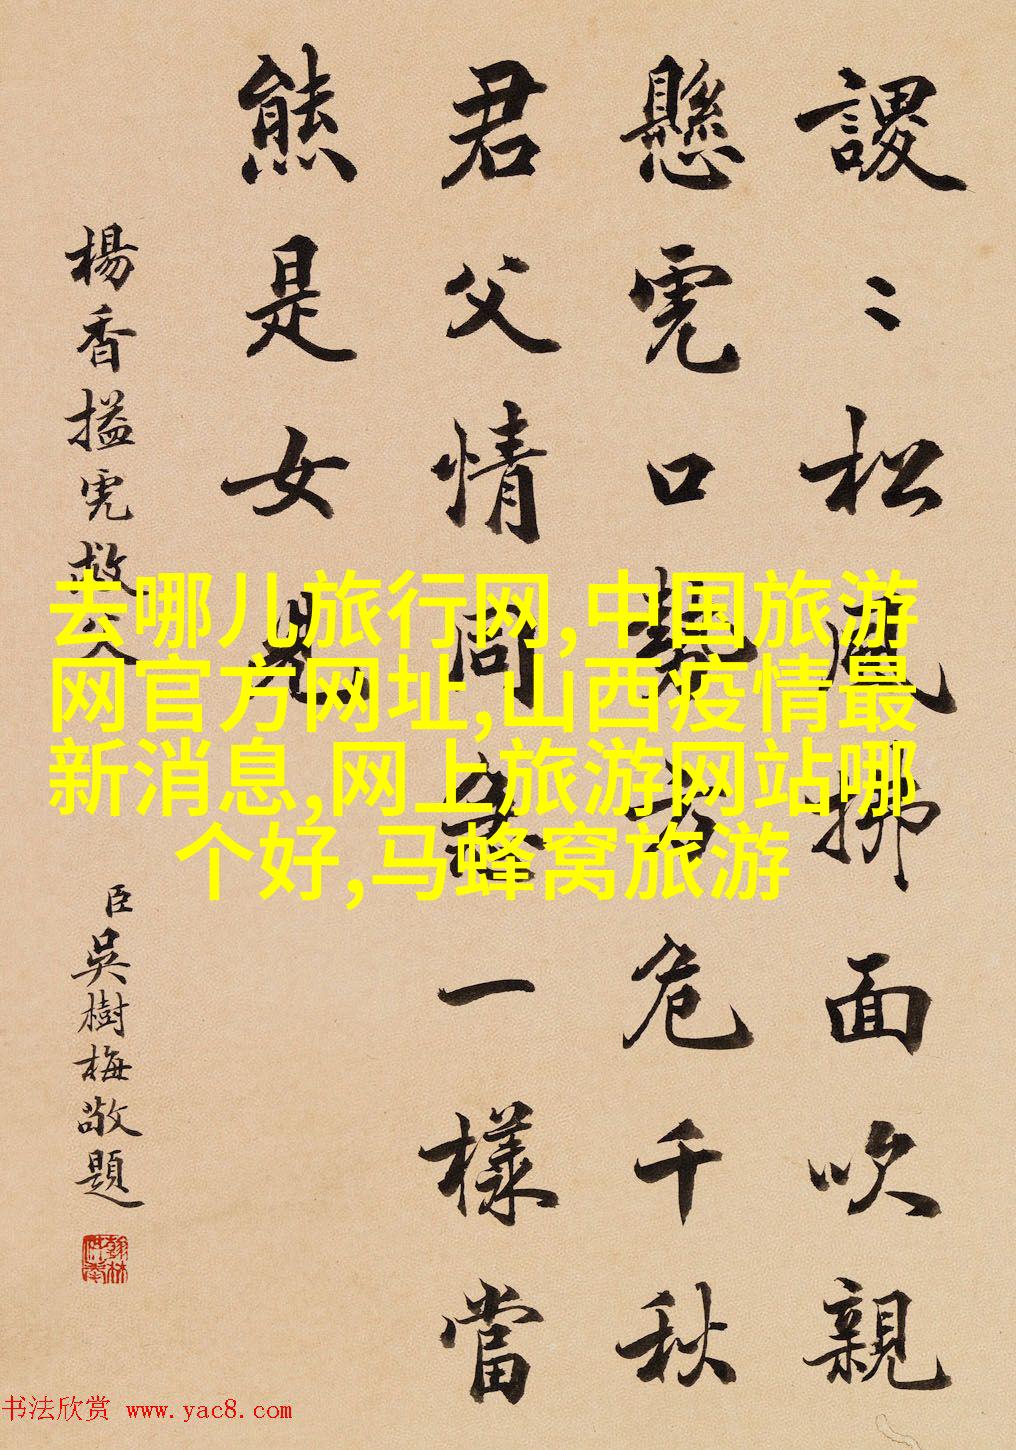 謖〻松風拂面吹親
懸虎口勢方危千秋
君父情同急一樣當
熊是女兒
楊香搤虎救父
臣吳樹梅敬題
翰林供奉
去哪儿旅行网,中国旅游
网官方网址,山西疫情最
新消息,网上旅游网站哪
个好,马蜂窝旅游
书法欣赏 www.yac8.com